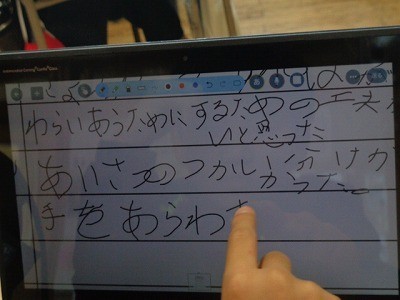 わらいあうためにするための工夫
いと思った
あいさつのつかい分けが
かった。
手をあらわ